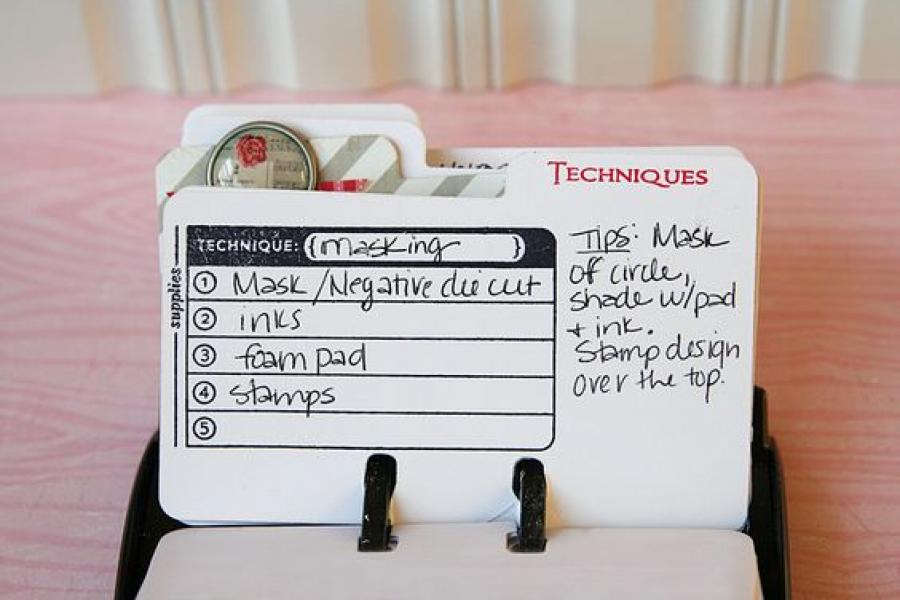 TECHNIQUES
TECHNIQUE: {masking}
supplies
1 Mask/Negative die cut
2 inks
3 foam pad
4 stamps
5
Tips: Mask
of circle,
shade w/pad
+ ink.
Stamp design
over the top.